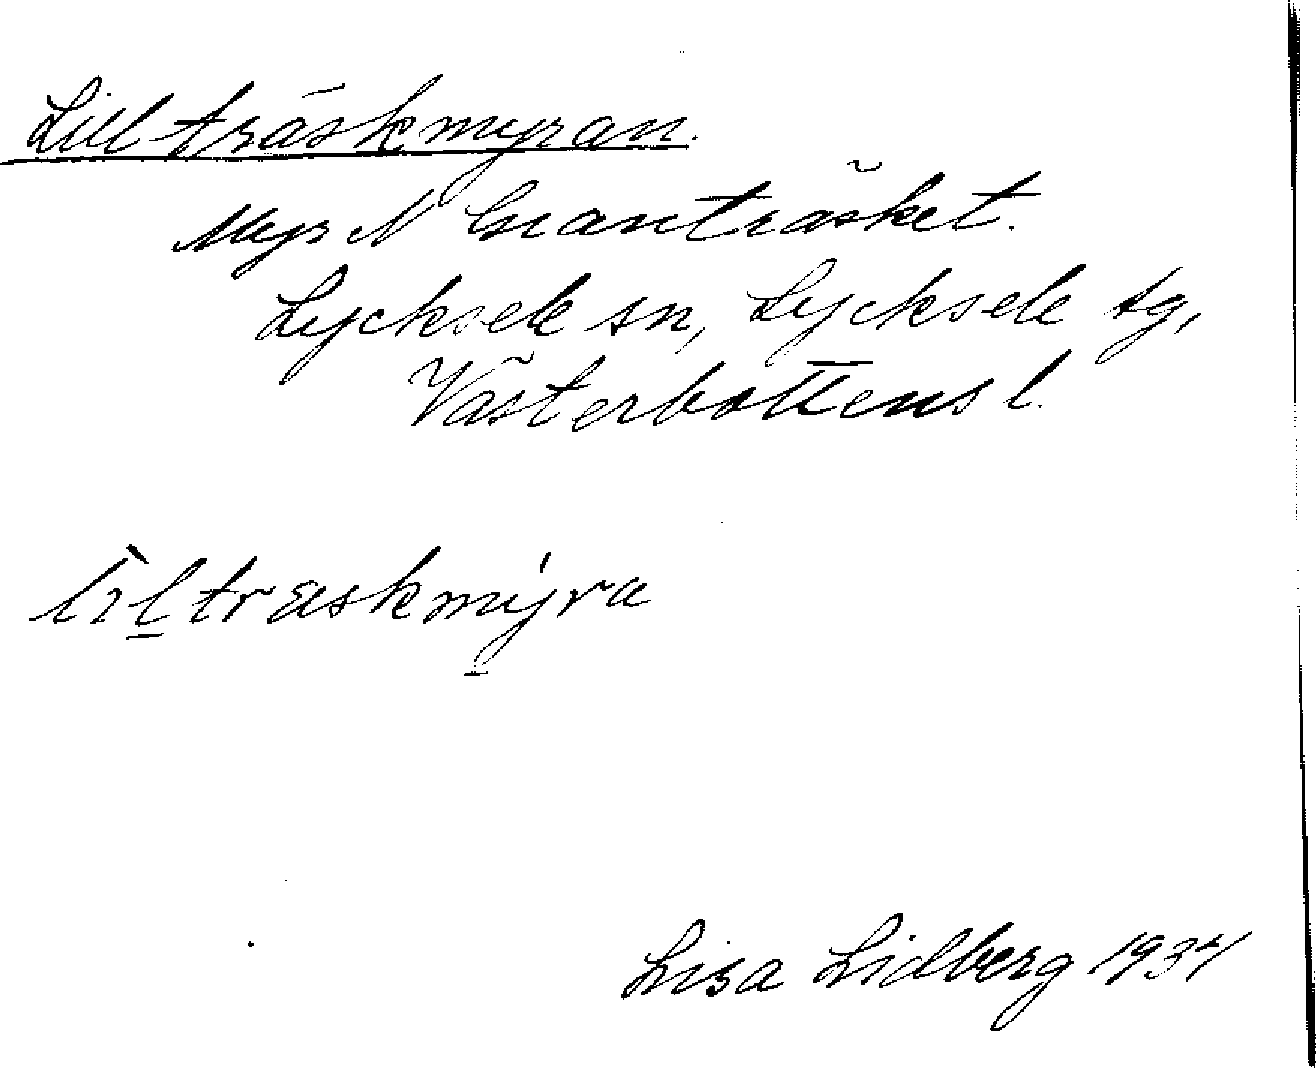 Lill-träskmyran.
Myr N Granträsket.
Lycksele sn, Lycksele tg,
Västerbottens l.
lìltraskmýra
Lisa Lidberg 1937